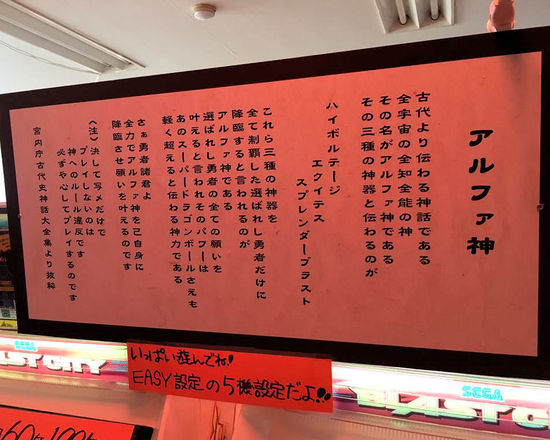 アルファ神
古代より伝わる神話である
全宇宙の全知全能の神
その名がアルファ神である
その三種の神器と伝わるのが
ハイボルテージ
エクイテス
スプレンダーブラスト
これら三種の神器を
全て制覇した選ばれし勇者だけに
降臨すると言われるのが
アルファ神である
選ばれし勇者の全ての願いを
叶えると言われそのパワーは
あのスーパードラゴンボールさえも
軽く超えると伝わる神力である
さぁ勇者諸君よ
全力でアルファ神を己自身に
降臨させ願いを叶えるのです
(注)決して写メだけで
プレイしないのは
神へのルール違反です
必ずや心してプレイするのです
宮内庁古代史神話大全集より抜粋
いっぱい遊んでね!
EASY設定の5機設定だよ!!
BLAST CITY
SEGA
BLAST CITY